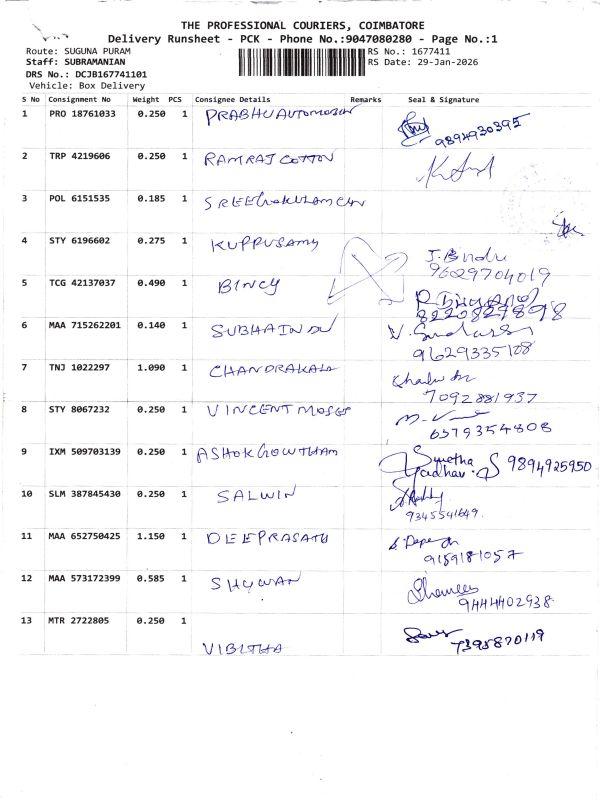 THE PROFESSIONAL COURIERS, COIMBATORE
Delivery Runsheet - PCK - Phone No.:9047080280 - Page No.:1
Route: SUGUNA PURAM RS No.: 1677411
Staff: SUBRAMANIAN RS Date: 29-Jan-2026
DRS No.: DCJB167741101
Vehicle: Box Delivery
S No Consignment No Weight PCS Consignee Details Remarks Seal & Signature
1 PRO 18761033 0.250 1 PRABHU AUTOMOBILE
9894930395
2 TRP 4219606 0.250 1 RAMRAJ COTTON
3 POL 6151535 0.185 1 SREEGOKULAM CH
4 STY 6196602 0.275 1 KUPPUSAMY
J. Bindu
9629704019
5 TCG 42137037 0.490 1 BINCY
8220827898
6 MAA 715262201 0.140 1 SUBHAINDU
9629335108
7 TNJ 1022297 1.090 1 CHANDRAKALA
7092881937
8 STY 8067232 0.250 1 VINCENT MOSES
6379354808
9 IXM 509703139 0.250 1 ASHOK GOWTHAM
Swetha
Yadhav. S 9894925950
10 SLM 387845430 0.250 1 SALWIN
9345541649.
11 MAA 652750425 1.150 1 DEEPRASATH
9159181057
12 MAA 573172399 0.585 1 SHYWAN
9444402938
13 MTR 2722805 0.250 1 VIBITHA
7395870119